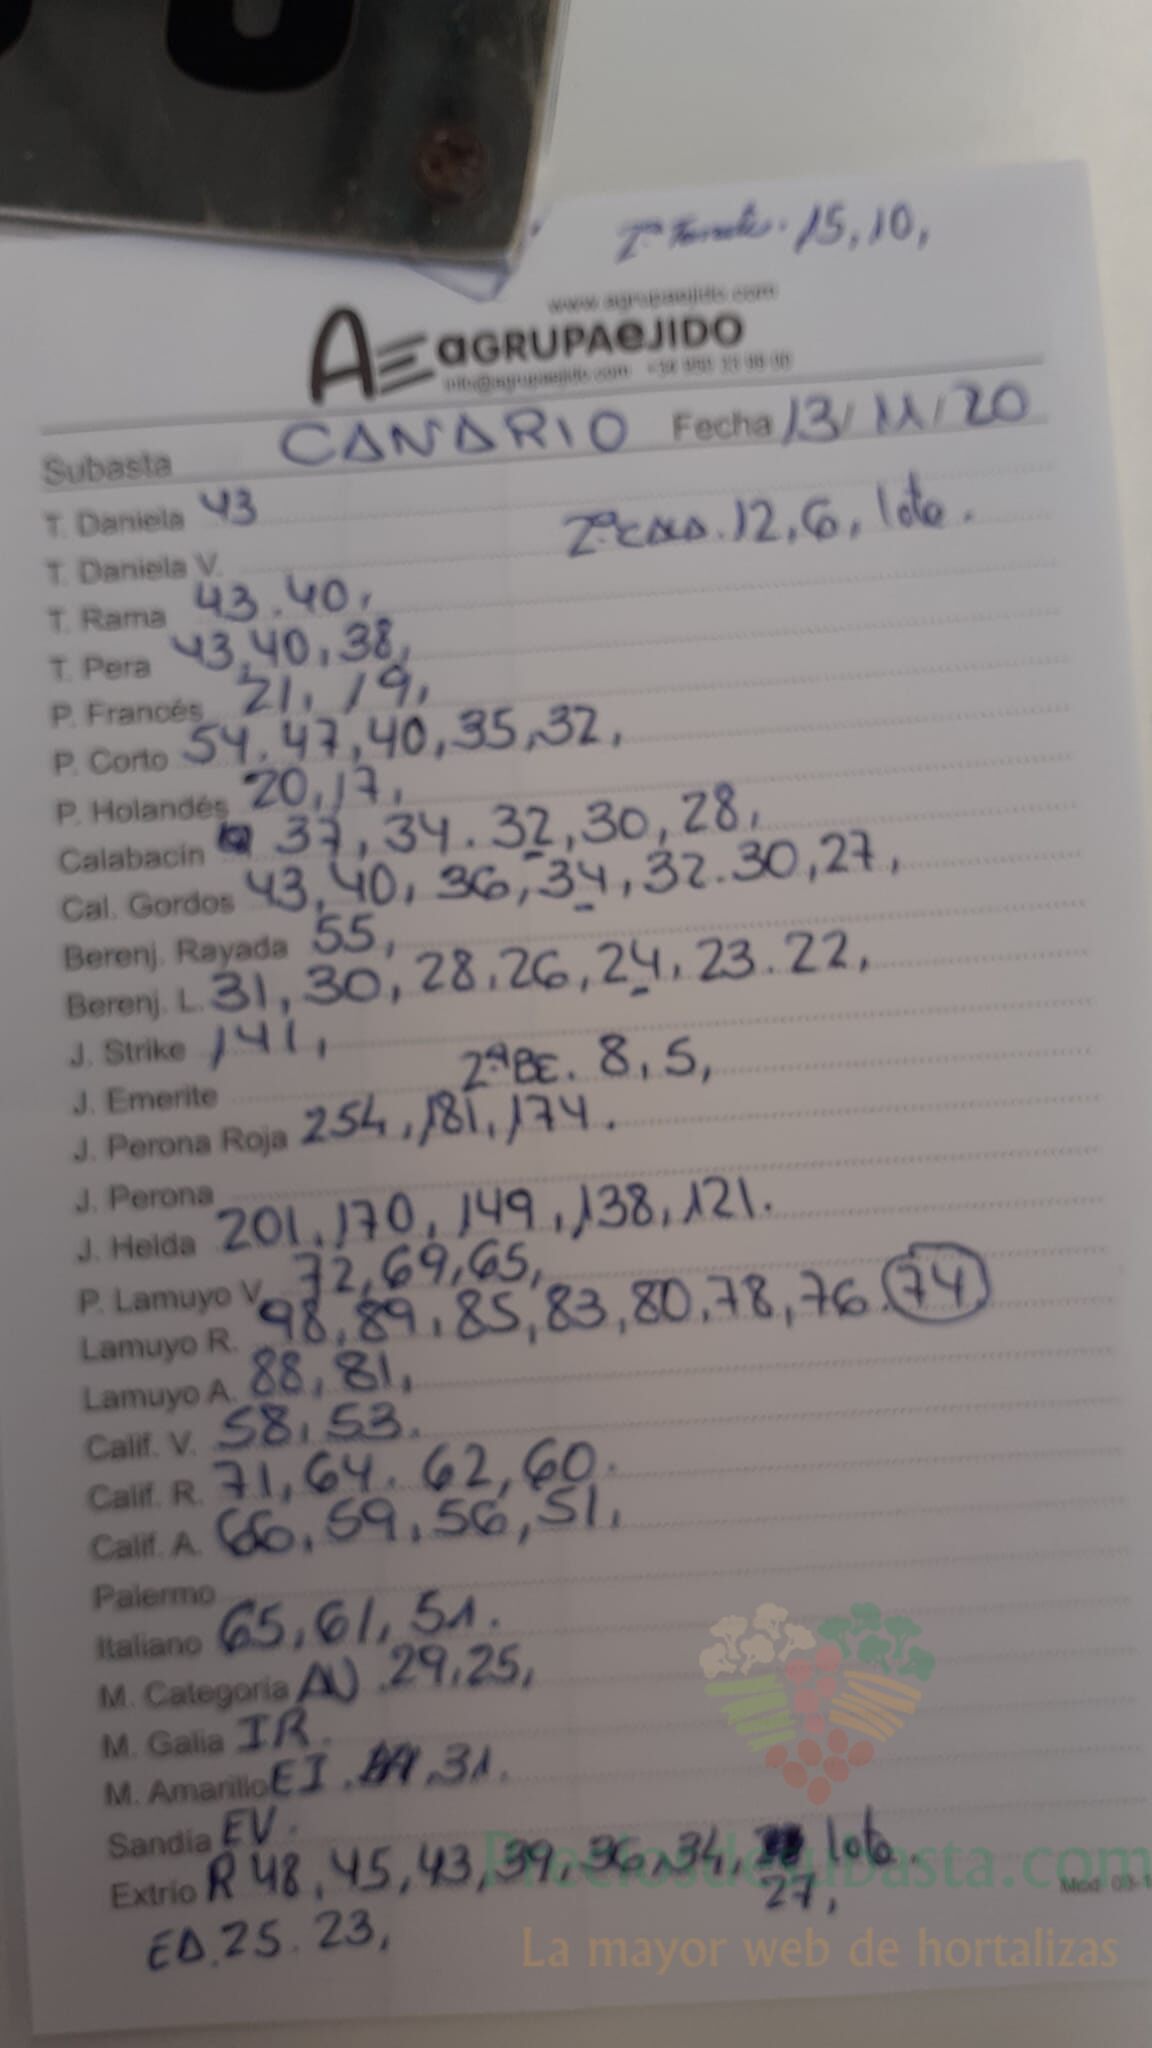 2ª Tomate. 15, 10,
www.agrupaejido.com
AGRUPAEJIDO
info@agrupaejido.com
Subasta CANARIO Fecha 13/11/20
T. Daniela 43
2ª CALA. 12, 6, lote.
T. Daniela V.
T. Rama 43. 40,
T. Pera 43, 40, 38,
P. Francés 21, 19,
P. Corto 54. 47, 40, 35, 32,
P. Holandés 20, 17,
Calabacin 37, 34. 32, 30, 28,
Cal. Gordos 43, 40, 36, 34, 32. 30, 27,
Berenj. Rayada 55,
Berenj. L. 31, 30, 28, 26, 24, 23. 22,
J. Strike 141,
2ª BE. 8, 5,
J. Emerite
J. Perona Roja 254, 181, 174.
J. Perona
J. Helda 201, 170, 149, 138, 121.
P. Lamuyo V. 72, 69, 65,
Lamuyo R. 98, 89, 85, 83, 80, 78, 76. 74,
Lamuyo A. 88, 81,
Calif. V. 58, 53.
Calif. R. 71, 64. 62, 60.
Calif. A. 66, 59, 56, 51,
Palermo
Italiano 65, 61, 51.
M. Categoria AV. 29, 25,
M. Galia IR.
M. Amarillo EI. 31.
Sandía EV.
Extrio R 48, 45, 43, 39, 36, 34, lote.
27,
Preciosdesubasta.com
ED. 25. 23,
La mayor web de hortalizas